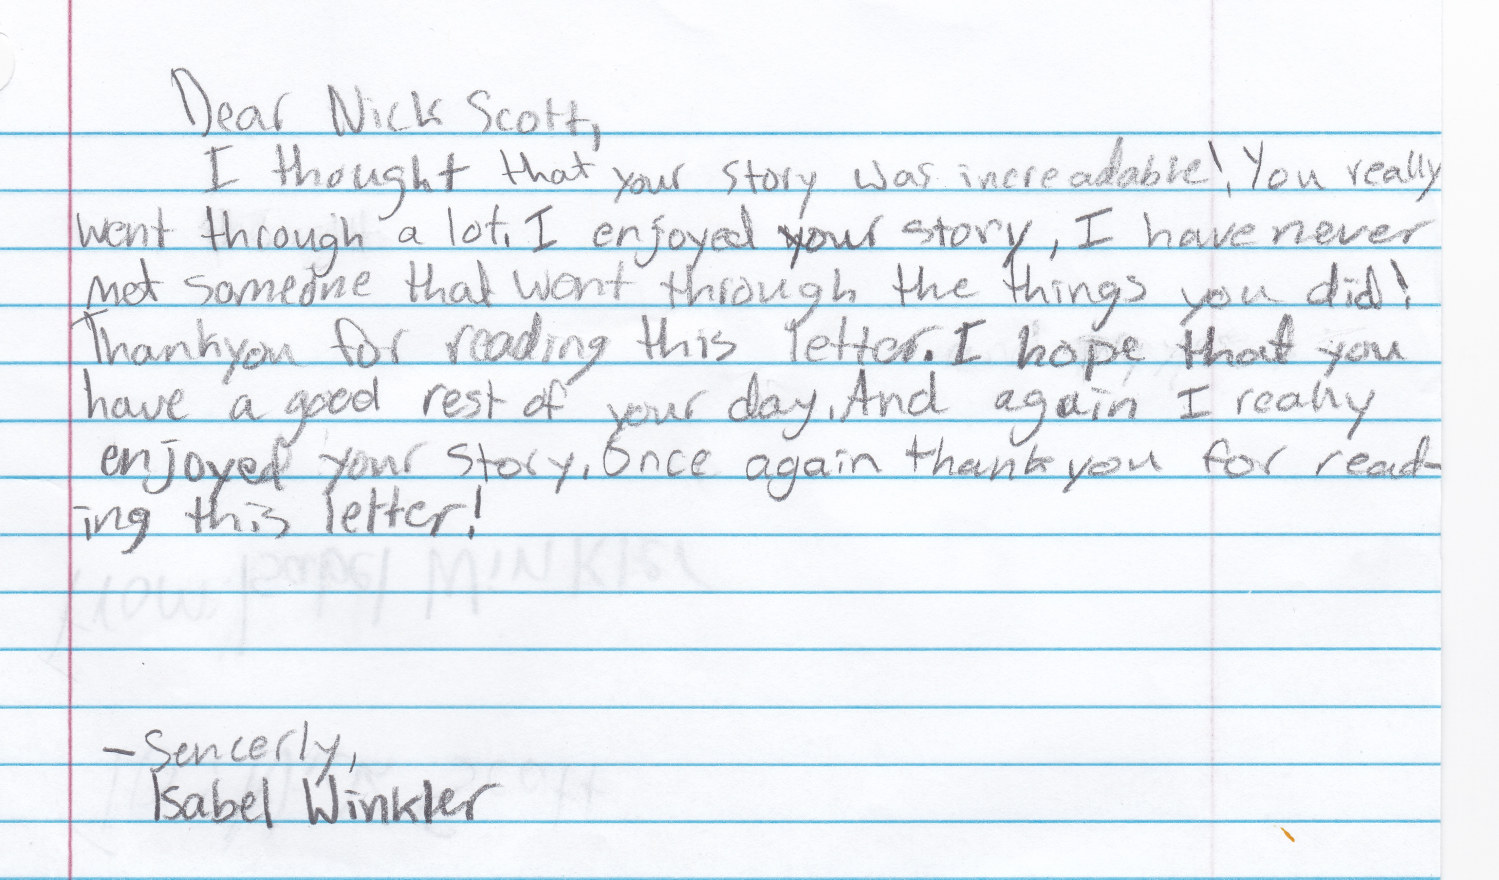 Dear Nick Scott,
I thought that your story was increadable! You really
went through a lot. I enjoyed your story, I have never
met someone that went through the things you did!
Thankyou for reading this letter. I hope that you
have a good rest of your day. And again I really
enjoyed your story. Once again thank you for read-
ing this letter!
- Sencerly,
Isabel Winkler